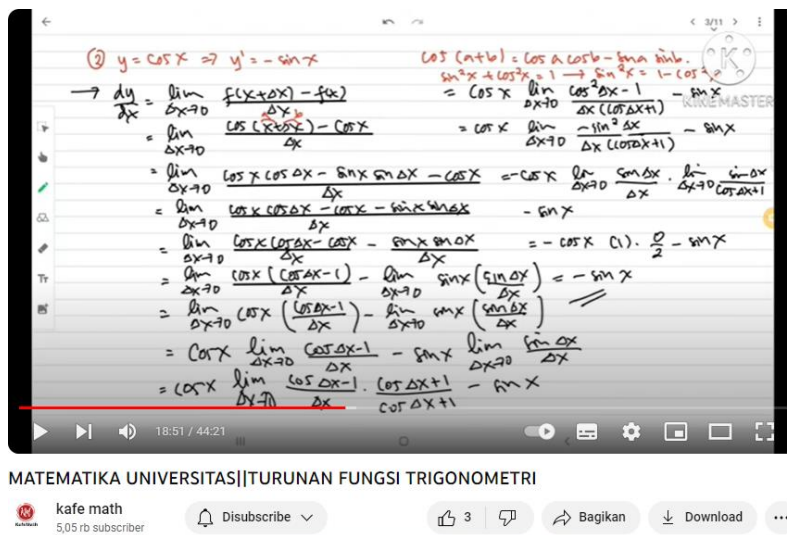 3/11
② y = cos x ⇒ y' = - sin x
cos (a+b) = cos a cos b - sin a sin b.
sin²x + cos²x = 1 → sin²x = 1 - cos²x
KINEMASTER
→ dy/dx = lim Δx→0 f(x+Δx) - f(x) / Δx
= lim Δx→0 cos (x+Δx) - cos x / Δx
a b
= lim Δx→0 cos x cos Δx - sin x sin Δx - cos x / Δx
= lim Δx→0 cos x cos Δx - cos x - sin x sin Δx / Δx
= lim Δx→0 cos x cos Δx - cos x / Δx - sin x sin Δx / Δx
= lim Δx→0 cos x (cos Δx - 1) / Δx - lim Δx→0 sin x (sin Δx / Δx)
= lim Δx→0 cos x (cos Δx - 1 / Δx) - lim Δx→0 sin x (sin Δx / Δx)
= cos x lim Δx→0 cos Δx - 1 / Δx - sin x lim Δx→0 sin Δx / Δx
= cos x lim Δx→0 cos Δx - 1 / Δx . cos Δx + 1 / cos Δx + 1 - sin x
= cos x lim Δx→0 cos²Δx - 1 / Δx (cos Δx + 1) - sin x
= cos x lim Δx→0 - sin²Δx / Δx (cos Δx + 1) - sin x
= - cos x lim Δx→0 sin Δx / Δx . lim Δx→0 sin Δx / cos Δx + 1
- sin x
= - cos x (1) . 0/2 - sin x
= - sin x
18:51 / 44:21
MATEMATIKA UNIVERSITAS||TURUNAN FUNGSI TRIGONOMETRI
kafe math
5,05 rb subscriber
Disubscribe
3
Bagikan
Download